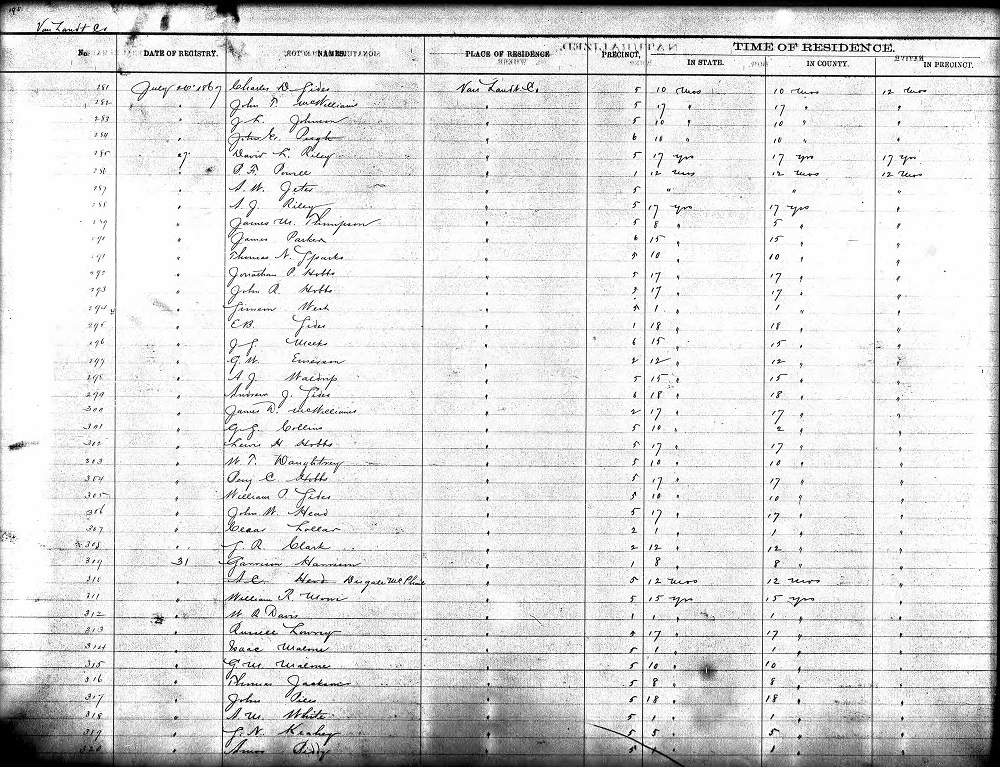 Van Zandt Co
No. DATE OF REGISTRY. NAMES. PLACE OF RESIDENCE PRECINCT. TIME OF RESIDENCE.
IN STATE. IN COUNTY. IN PRECINCT.
281 July 26 1867 Charles D. Sides Van Zandt Co 5 10 mos 10 mos 12 mos
282 " John T. McWilliams " 5 17 " 17 " "
283 " J. L. Johnson " 5 10 " 10 " "
284 " John G. Pugh " 6 18 " 10 " "
285 27 David L. Riley " 5 17 yrs 17 yrs 17 yrs
286 " P. F. Powell " 1 12 mos 12 mos 12 mos
287 " A. W. Jeter " 5 " " "
288 " A. J. Riley " 5 17 yrs 17 yrs "
289 " James M. Thompson " 5 8 " 5 " "
290 " James Parker " 6 15 " 15 " "
291 " Thomas N. Sparks " 5 10 " 10 " "
292 " Jonathan P. Hobbs " 5 17 " 17 " "
293 " John R. Hobbs " 5 17 " 17 " "
294 " Simeon West " 5 1 " 1 " "
295 " E.B. Sides " 1 18 " 18 " "
296 " J. G. Meeks " 6 15 " 15 " "
297 " G. W. Emerson " 2 12 " 12 " "
298 " A. J. Waldrip " 5 15 " 15 " "
299 " Andrew J. Sides " 6 18 " 18 " "
300 " James D. McWilliams " 2 17 " 17 " "
301 " G. G. Collins " 5 10 " 2 " "
302 " Lewis H. Hobbs " 5 17 " 17 " "
303 " W. T. Daughtrey " 5 10 " 10 " "
304 " Benj C. Hobbs " 5 17 " 17 " "
305 " William P. Sides " 5 10 " 10 " "
306 " John W. Head " 5 17 " 17 " "
307 " Lollar " 2 1 " 1 " "
308 " J. R. Clark " 2 12 " 12 " "
309 31 Garrison Harrison " 1 8 " 8 " "
310 " A.C. Herd " 5 12 mos 12 mos "
311 " William R. " 5 15 yrs 15 yrs "
312 " W R Davis " 1 1 " 1 " "
313 " Russell Lowrey " 17 " 17 " "
314 " Isaac Malone " 5 1 " 1 " "
315 " G. M. Malone " 5 10 " 10 " "
316 " Thomas Jackson " 5 8 " 8 " "
317 " John " 5 18 " 18 " "
318 " A. M. White " 5 1 " 1 " "
319 " J. N. Keahey " 5 5 " 5 " "
320 " Amos " 5 1 " "